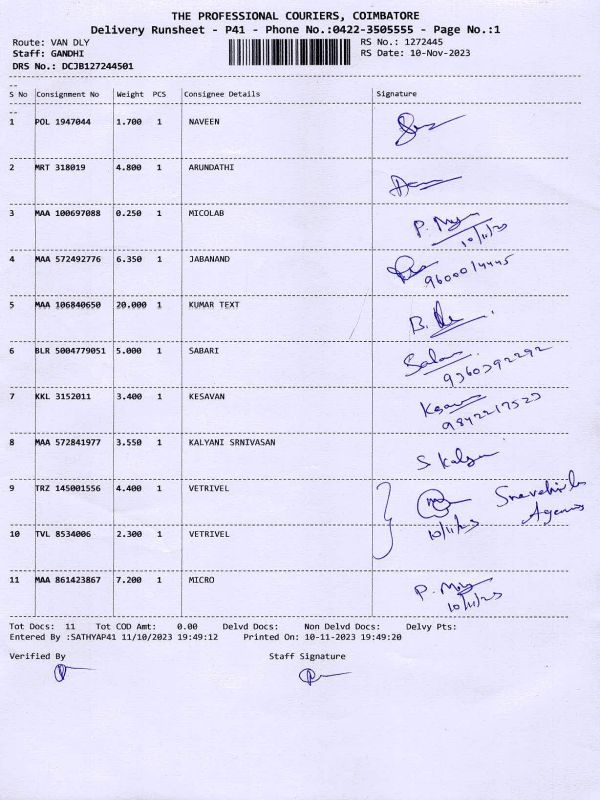 THE PROFESSIONAL COURIERS, COIMBATORE
Delivery Runsheet - P41 - Phone No.:0422-3505555 - Page No.:1
Route: VAN DLY
RS No.: 1272445
Staff: GANDHI
RS Date: 10-Nov-2023
DRS No.: DCJB127244501
S No Consignment No Weight PCS Consignee Details Signature
1 POL 1947044 1.700 1 NAVEEN
2 MRT 318019 4.800 1 ARUNDATHI
3 MAA 100697088 0.250 1 MICOLAB
10/11/23
4 MAA 572492776 6.350 1 JABANAND
9600014445
5 MAA 106840650 20.000 1 KUMAR TEXT
6 BLR 5004779051 5.000 1 SABARI
9360392292
7 KKL 3152011 3.400 1 KESAVAN
9842217523
8 MAA 572841977 3.550 1 KALYANI SRNIVASAN
S Kalyan
9 TRZ 145001556 4.400 1 VETRIVEL
10/11/23
10 TVL 8534006 2.300 1 VETRIVEL
11 MAA 861423867 7.200 1 MICRO
10/11/23
Tot Docs: 11 Tot COD Amt: 0.00 Delvd Docs: Non Delvd Docs: Delvy Pts:
Entered By :SATHYAP41 11/10/2023 19:49:12 Printed On: 10-11-2023 19:49:20
Verified By Staff Signature